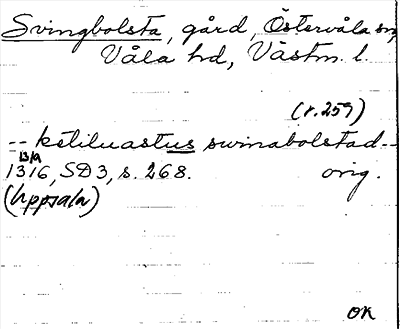 Svingbolsta, gård, Östervåla sn,
Våla hd, Västm. l.
(r. 259)
-- ketiluastus swinabolstad --
13/9
1316, SD3, s. 268. orig.
(Uppsala)
OK